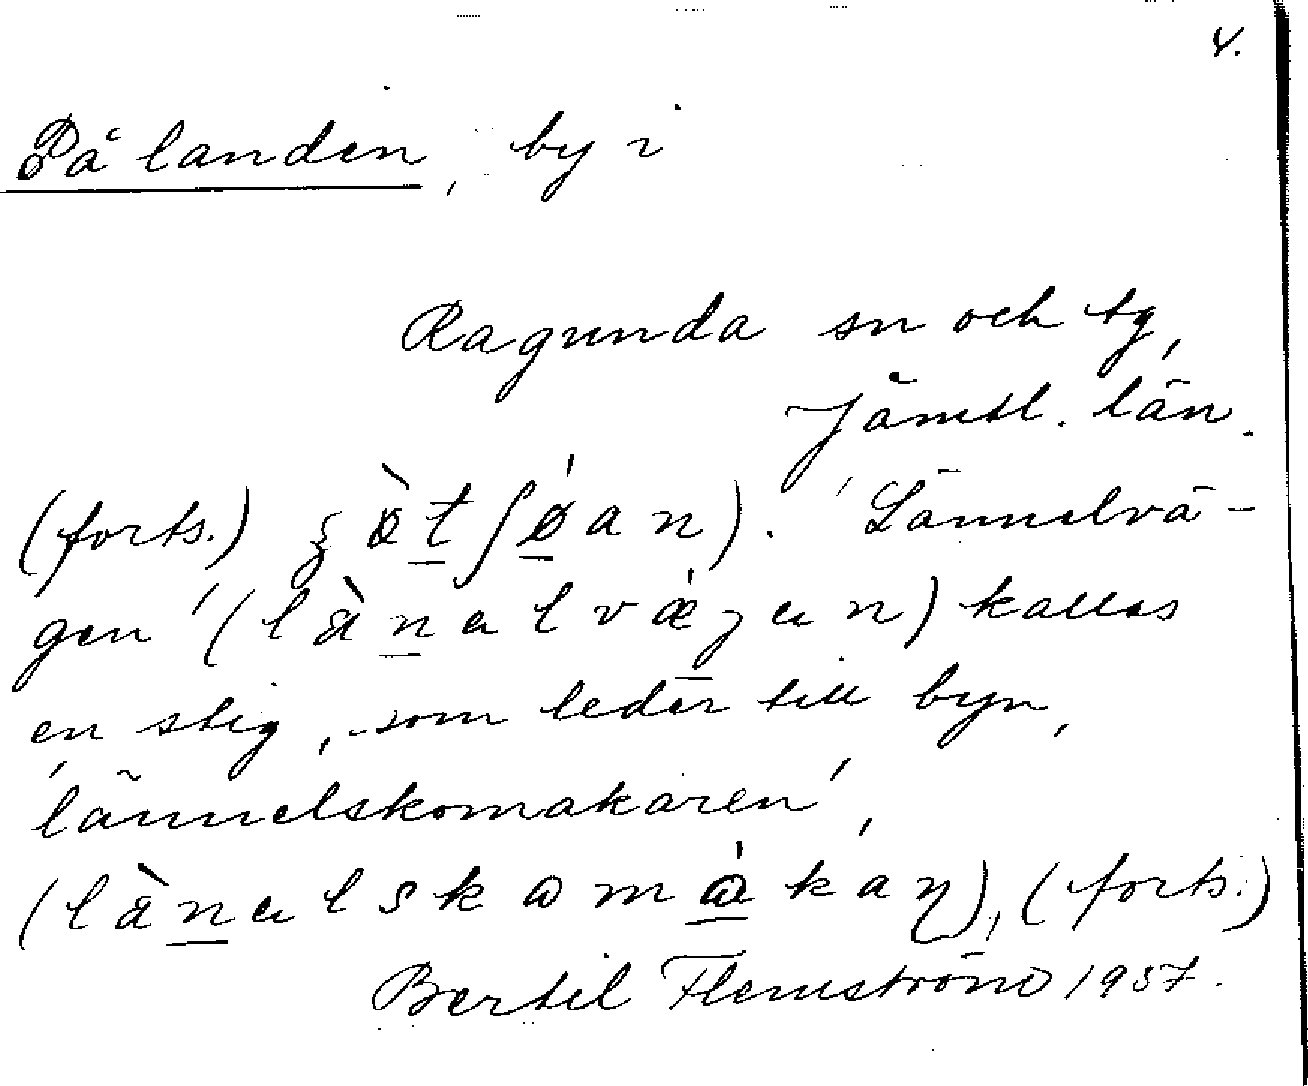 4.
På landen, by i
Ragunda sn och tg,
Jämtl. län.
(forts.) 'Lännelvä-
gen' (lànalvǽgan) kallas
en stig, som leder till byn,
'lännelskomakaren',
(forts.)
Bertil Flemström 1957.